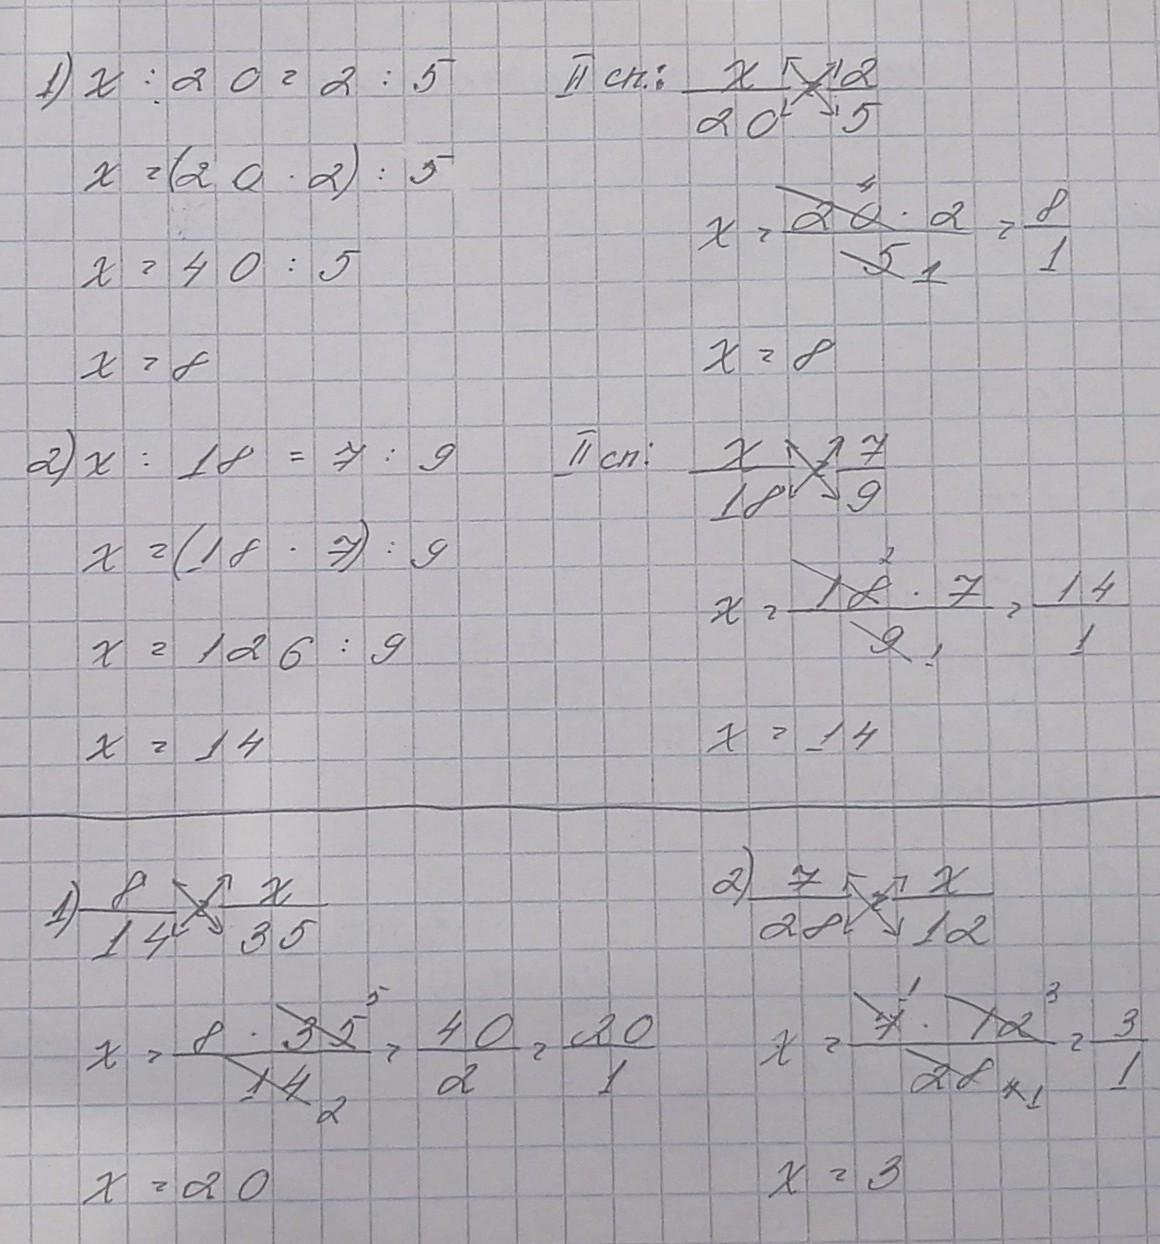 1) x : 20 = 2 : 5
x = (20 · 2) : 5
x = 40 : 5
x = 8
II сп.: x/20 = 2/5
x = 20 4 · 2 / 5 1 = 8/1
x = 8
2) x : 18 = 7 : 9
x = (18 · 7) : 9
x = 126 : 9
x = 14
II сп: x/18 = 7/9
x = 18 2 · 7 / 9 1 = 14/1
x = 14
1) 8/14 = x/35
x = 8 · 35 5 / 14 2 = 40/2 = 20/1
x = 20
2) 7/28 = x/12
x = 7 1 · 12 3 / 28 4 1 = 3/1
x = 3